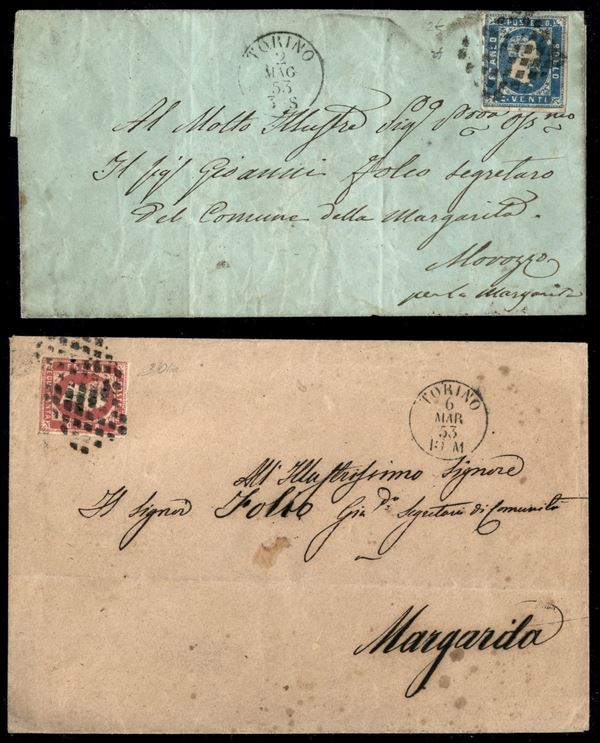 TORINO
2
MAG
53
3 S
C. POSTE 20.
FRANCO
BOLLO
C. VENTI
Al Molto Illustre Sig.
Il Sig. Gioanni Folco segretaro
Del Comune della Margarita.
Morozzo
per la Margarita
TORINO
6
MAR
53
10 M
All'Illustrissimo Signore
Il Signor Folco Segretario di Comunità
Margarita